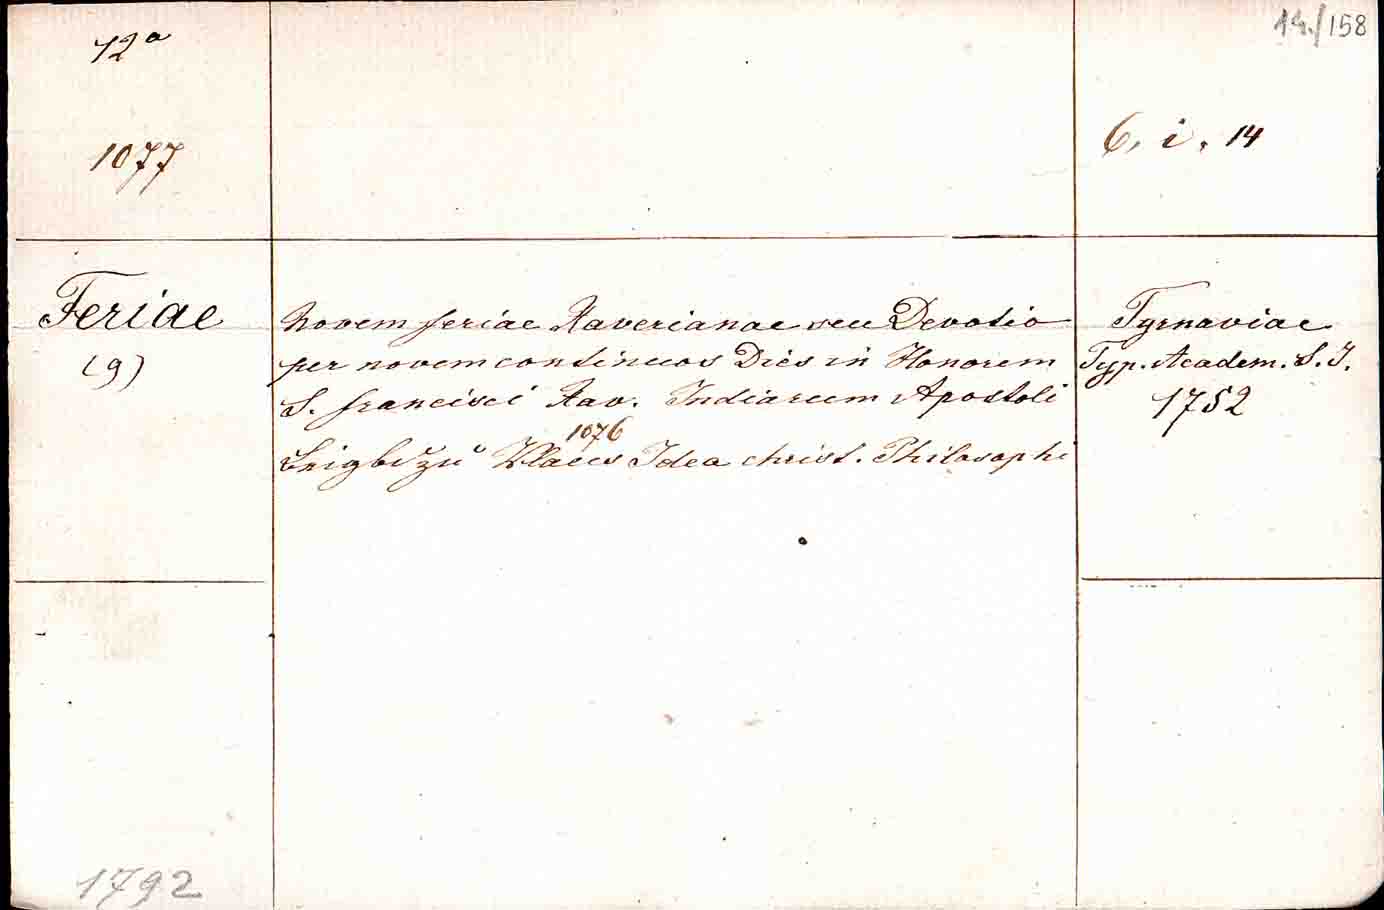 12°
1077
14./158
6, i. 14
Feriae
(9)
Novem feriae Xaverianae seu Devotio
per novem continuos Dies in Honorem
S. Francisci Xav. Indiarum Apostoli
1076
zu Idea christ. Philosophi
Tyrnaviae
Typ. Academ. S. J.
1752
1792